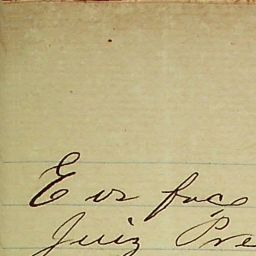 E os faço
Juiz Pre